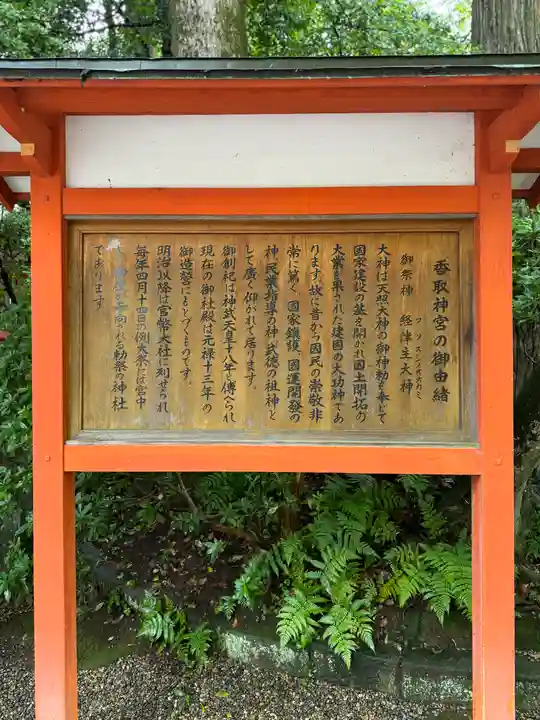 香取神宮の御由緒
フツヌシノオホカミ
御祭神 経津主大神
大神は天照大神の御神勅を奉じて
國家建設の基を開かれ國土開拓の
大業を果された建國の大功神であ
ります。故に昔から國民の崇敬非
常に篤く、國家鎮護、國運開發の
神、民業指導の神、武徳の祖神と
して廣く仰がれて居ります。
御創紀は神武天皇十八年と傳へられ
現在の御社殿は元禄十三年の
御造営にもとづくものです。
明治以降は官幣大社に列せられ
毎年四月十四日の例大祭には宮中
される勅祭の神社
であります